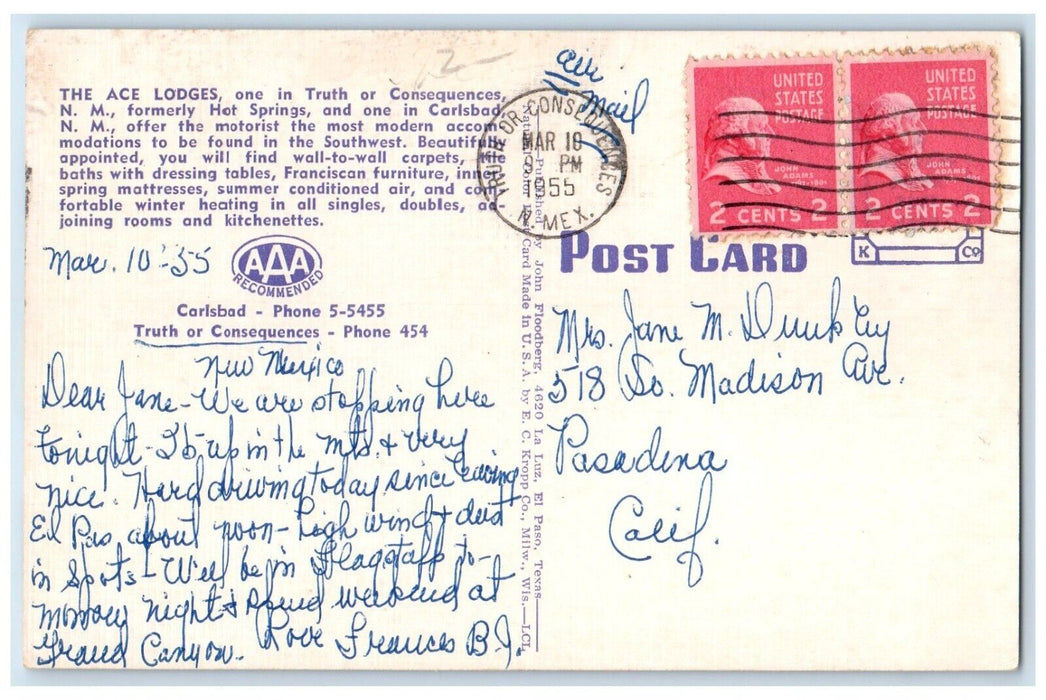 THE ACE LODGES, one in Truth or Consequences,
N. M., formerly Hot Springs, and one in Carlsbad
N. M., offer the motorist the most modern accom-
modations to be found in the Southwest. Beautifully
appointed, you will find wall-to-wall carpets, tile
baths with dressing tables, Franciscan furniture, inner-
spring mattresses, summer conditioned air, and com-
fortable winter heating in all singles, doubles, ad-
joining rooms and kitchenettes.
Mar. 10-55
AAA
RECOMMENDED
Carlsbad - Phone 5-5455
Truth or Consequences - Phone 454
New Mexico
Dear Jane - We are stopping here
tonight - up in the mts. & very
nice. Hard driving today since leaving
El Pas about noon - high wind & dust
in spots - We'll be in Flagstaff to-
morrow night & spend weekend at
Grand Canyon. Love Frances B. J.
Published by John Floodberg, 4620 La Luz, El Paso, Texas
Card Made in U. S. A. by E. C. Kropp Co., Milw., Wis.—LCL
2
air
mail
TRUTH OR CONSEQUENCES
MAR 10
PM
1955
N. MEX.
UNITED STATES POSTAGE
JOHN ADAMS
2 CENTS 2
UNITED STATES POSTAGE
JOHN ADAMS
2 CENTS 2
K Co
POST CARD
Mrs. Jane M. Dunkley
518 So. Madison Ave.
Pasadena
Calif.